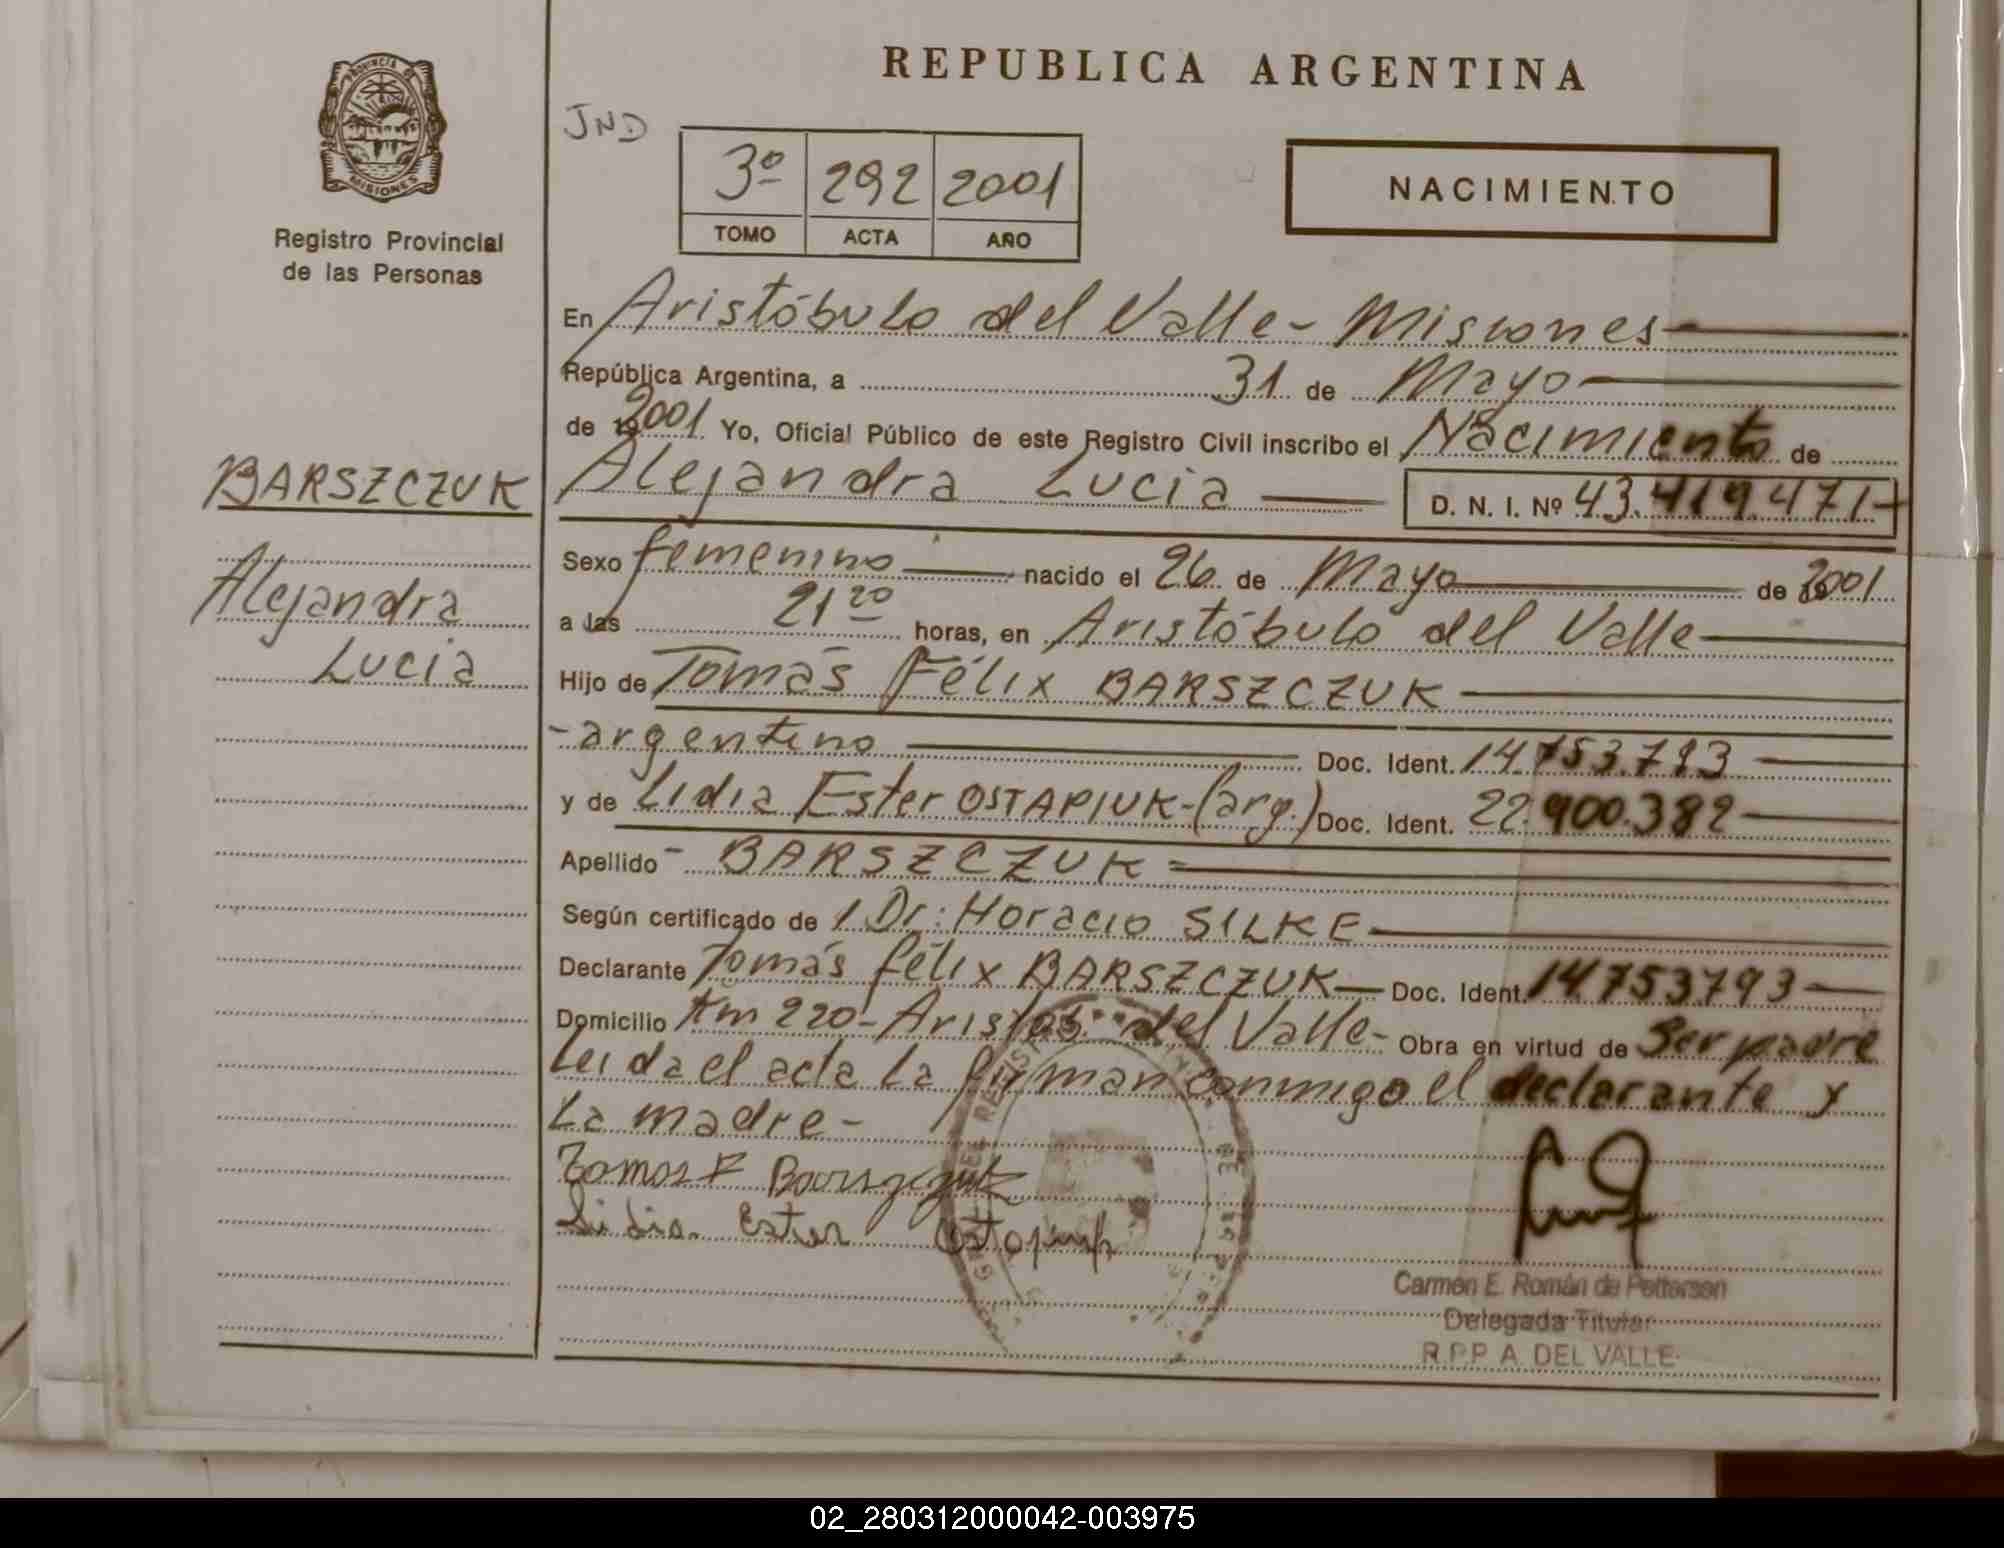 PROVINCIA DE
MISIONES
Registro Provincial
de las Personas
BARSZCZUK
Alejandra
Lucia
REPUBLICA ARGENTINA
JND
3º 292 2001
TOMO ACTA AÑO
NACIMIENTO
En Aristóbulo del Valle - Misiones
República Argentina, a 31 de Mayo
de 2001 Yo, Oficial Público de este Registro Civil inscribo el Nacimiento de
Alejandra Lucia D. N. I. Nº 43.419.471
Sexo femenino nacido el 26 de Mayo de 2001
a las 21 20 horas, en Aristóbulo del Valle
Hijo de Tomás Félix BARSZCZUK
- argentino Doc. Ident. 14.753.793
y de Lidia Ester OSTAPIUK - (arg.) Doc. Ident. 22.900.382
Apellido - BARSZCZUK =
Según certificado de / Dr: Horacio SILKE
Declarante Tomás félix BARSZCZUK Doc. Ident. 14.753793
Domicilio Km 220 - Aristób. del Valle - Obra en virtud de Ser padre
Leida el acta la firman conmigo el declarante y
La madre -
Tomas F Barszczuk
Lidia Ester Ostapiuk
Carmen E. Román de Pettersen
Delegada Titular
R.P.P A. DEL VALLE
02_280312000042-003975